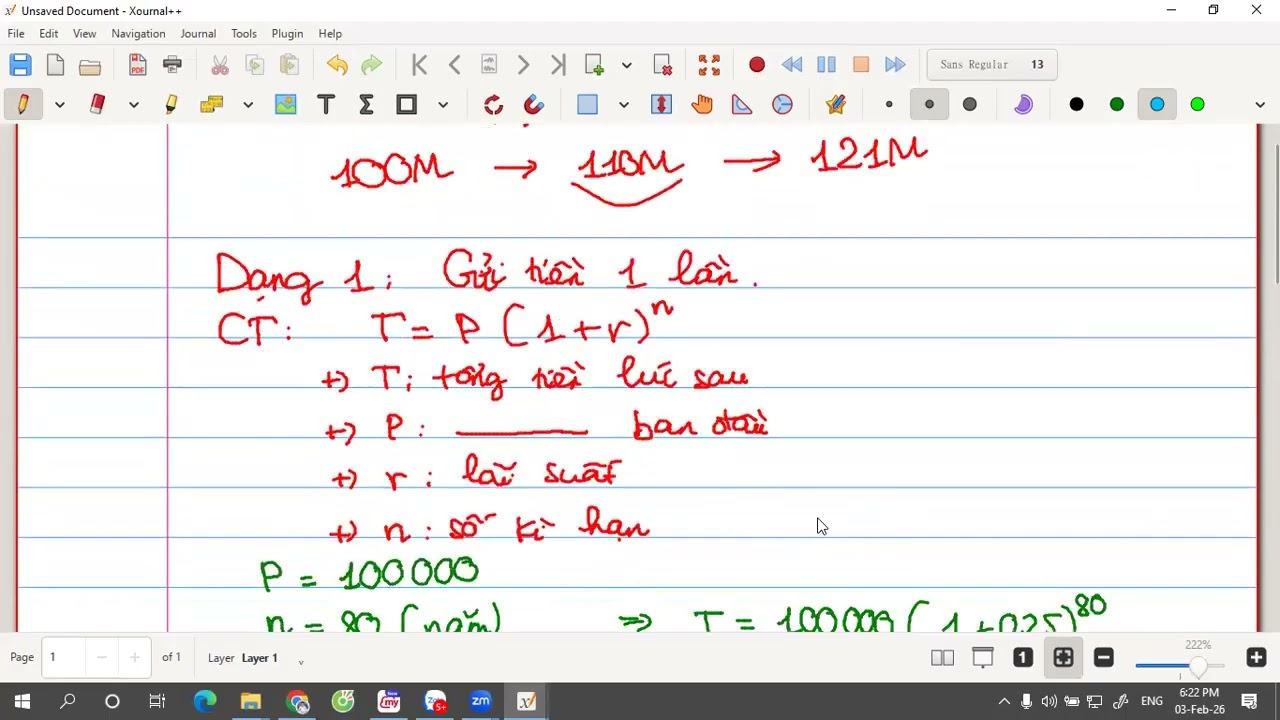 Unsaved Document - Xournal++
File Edit View Navigation Journal Tools Plugin Help
Sans Regular 13
100M → 110M → 121M
Dạng 1: Gửi tiền 1 lần.
CT: T = P (1 + r)^n
+) T: tổng tiền lúc sau
+) P: ———— ban đầu
+) r: lãi suất
+) n: số kì hạn
P = 100 000
n = 80 (năm) => T = 100 000 (1 + 0,25)^80
Page 1 of 1 Layer Layer 1 222%
ENG 6:22 PM
03-Feb-26